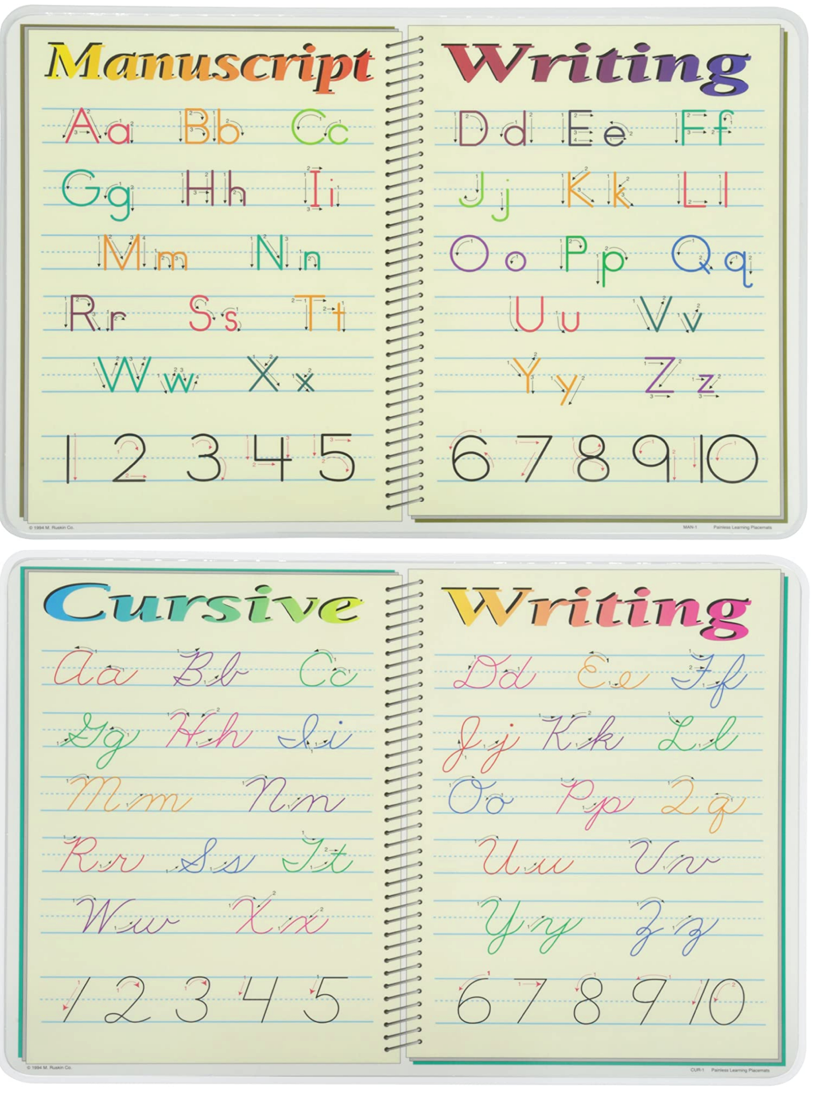 Manuscript Writing
Aa Bb Cc Dd Ee Ff
Gg Hh Ii Jj Kk Ll
Mm Nn Oo Pp Qq
Rr Ss Tt Uu Vv
Ww Xx Yy Zz
1 2 3 4 5 6 7 8 9 10
© 1994 M. Ruskin Co. MAN-1 Painless Learning Placemats
Cursive Writing
Aa Bb Cc Dd Ee Ff
Gg Hh Ii Jj Kk Ll
Mm Nn Oo Pp Qq
Rr Ss Tt Uu Vv
Ww Xx Yy Zz
1 2 3 4 5 6 7 8 9 10
© 1994 M. Ruskin Co. CUR-1 Painless Learning Placemats